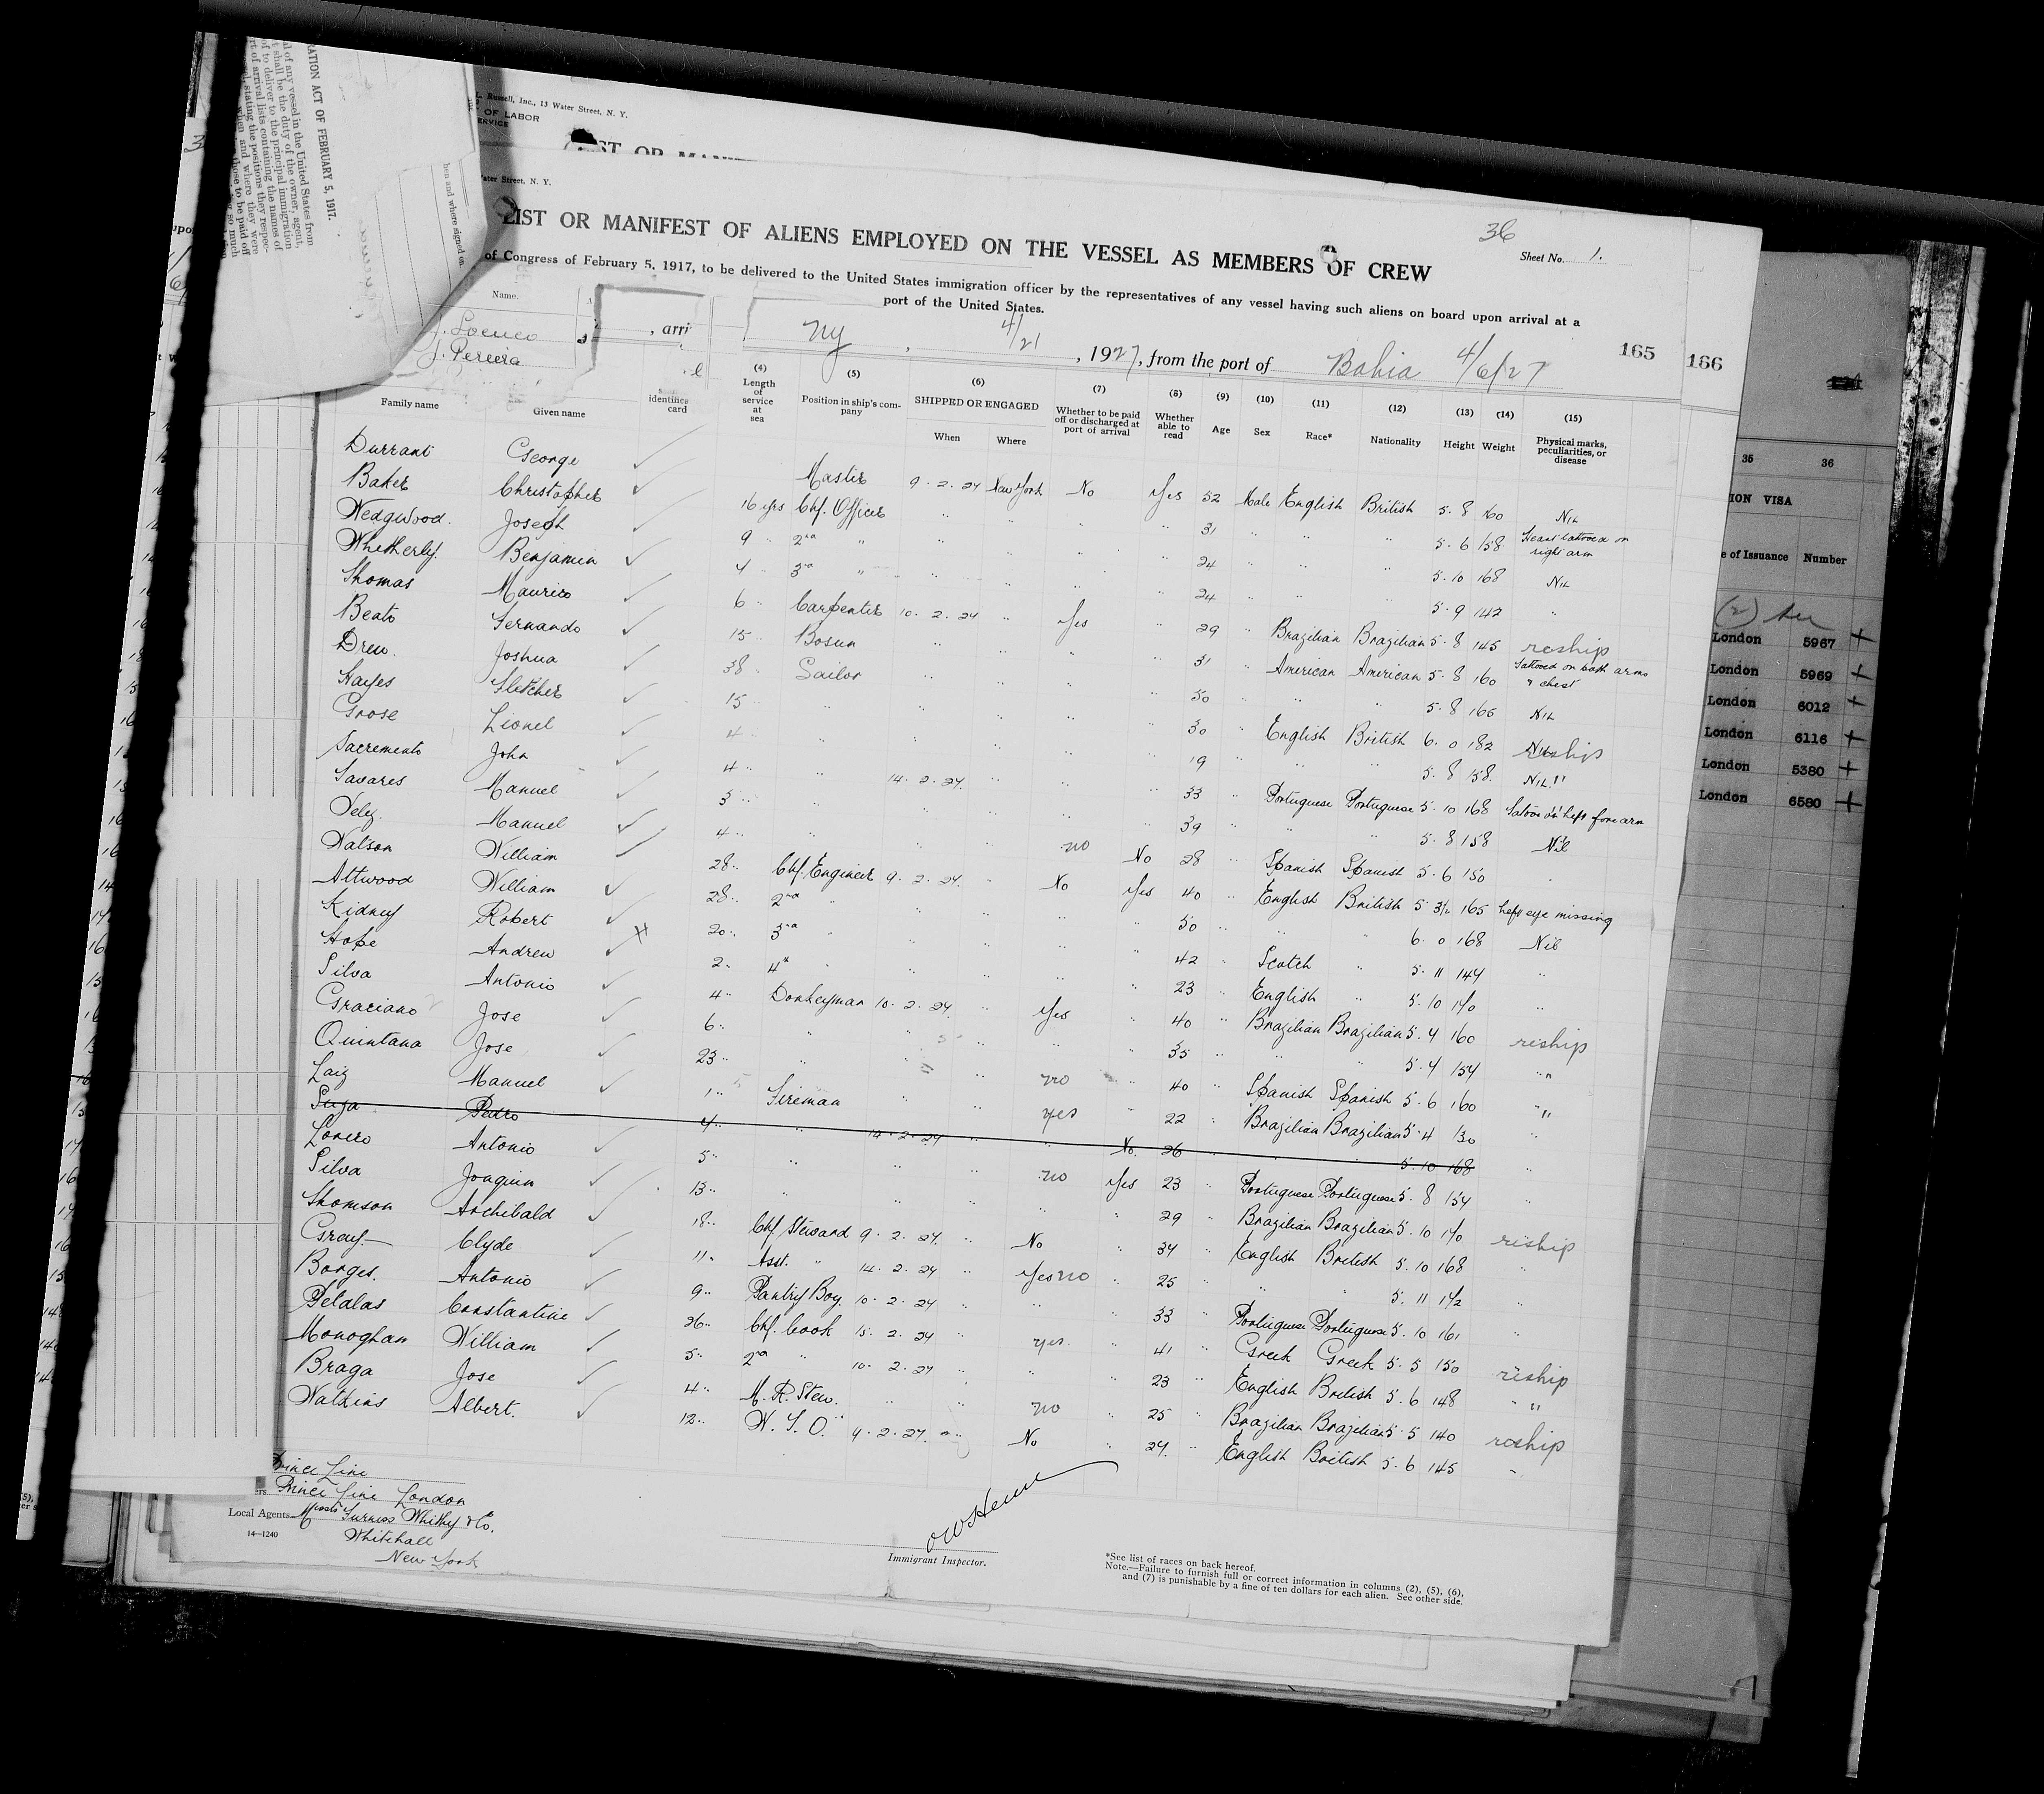 RATION ACT OF FEBRUARY 5, 1917.
al of any vessel in the United States from
t shall be the duty of the owner, agent,
of to deliver to the principal immigration
rt of arrival lists containing the names of
stating the positions they respec-
when and where they were
those to be paid off
so much
hen and where signed on.
L. Russell, Inc., 13 Water Street, N. Y.
OF LABOR
ERVICE
ST OR MANI
Water Street, N. Y.
36
LIST OR MANIFEST OF ALIENS EMPLOYED ON THE VESSEL AS MEMBERS OF CREW
Sheet No. 1.
of Congress of February 5, 1917, to be delivered to the United States immigration officer by the representatives of any vessel having such aliens on board upon arrival at a
port of the United States.
Name.
J. Pereira
, arri
NY, 4/21, 1927, from the port of Bahia 4/6/27
165
166
Family name
Given name
identifica
card
(4) Length of service at sea
(5) Position in ship's company
(6) SHIPPED OR ENGAGED
When
Where
(7) Whether to be paid off or discharged at port of arrival
(8) Whether able to read
(9) Age
(10) Sex
(11) Race*
(12) Nationality
(13) Height
(14) Weight
(15) Physical marks, peculiarities, or disease
Durrant George ✓ Master 9.2.27 New York No Yes 52 Male English British 5.8 160 Nil
Baker Christopher ✓ 16 yrs Chf. Officer " " " " 31 " " " 5.6 158 Heart tattooed on right arm
Wedgwood. Joseph ✓ 9 " 2nd " " " " " 24 " " " 5.10 168 Nil
Whetherly. Benjamin ✓ 4 " 3rd " " " " " 24 " " " 5.9 142 "
Thomas Maurico ✓ 6 " Carpenter 10.2.27 " Yes " 29 " Brazilian Brazilian 5.8 145 reship
Beato Fernando ✓ 15 " Bosun " " " " 31 " American American 5.8 160 Tattooed on both arms & chest
Drew. Joshua ✓ 38 " Sailor " " " " 50 " " " 5.8 165 Nil
Hayes Fletcher ✓ 15 " " " " " 30 " English British 6.0 182 reship
Grose Lionel ✓ 4 " " " " " 19 " " " 5.8 158 Nil "
Sacremento John ✓ 4 " " 14.2.27. " " " 33 " Portuguese Portuguese 5.10 168 Tatoo on left fore arm
Tavares Manuel ✓ 3 " " " " " " 39 " " " 5.8 158 Nil
Velez. Manuel ✓ 4 " " " " no No 28 " Spanish Spanish 5.6 150 "
Watson William ✓ 28 " Chf. Engineer 9.2.27. " No Yes 40 " English British 5 3½ 165 Left eye missing
Attwood William ✓ 28 " 2nd " " " " " 50 " " " 6.0 168 Nil
Kidney Robert ✓ 20 " 3rd " " " " " 42 " Scotch " 5.11 144 "
Hope Andrew ✓ 2 " 4th " " " " " 23 " English " 5.10 170 "
Silva Antonio ✓ 4 " Donkeyman 10.2.27. " Yes " 40 " Brazilian Brazilian 5.4 160 reship
Graciano Jose ✓ 6 " " " " " " 35 " " " 5.4 154 "
Quintana Jose ✓ 23 " " " " no " 40 " Spanish Spanish 5.6 160 "
Laiz Manuel ✓ 1 " Fireman " " yes " 22 " Brazilian Brazilian 5.4 130 "
Pedro 4 " " 14.2.27 " " No. 26 " " " 5.10 168 "
Antonio ✓ 5 " " " " no Yes 23 " Portuguese Portuguese 5.8 154 "
Silva Joaquim ✓ 13 " " " " " " 29 " Brazilian Brazilian 5.10 170 reship
Thomson Archibald ✓ 18 " Chf. Steward 9.2.27. " No " 34 " English British 5.10 168 "
Gray. Clyde ✓ 11 " Asst. " 14.2.27 " Yes no " 25 " " " 5.11 172 "
Borges. Antonio ✓ 9 " Pantry Boy. 10.2.27 " " " 33 " Portuguese Portuguese 5.10 161 "
Petalas Constantine ✓ 26 " Chf. Cook 15.2.27 " yes. " 41 " Greek Greek 5.5 150 reship
Monoghan William ✓ 5 " 2nd " 10.2.27 " " " 23 " English British 5.6 148 "
Braga Jose ✓ 4 " M. R. Stew. " " no " 25 " Brazilian Brazilian 5.5 140 reship
Watkins Albert. ✓ 12 " W. T. O. 9.2.27. " No " 27. " English British 5.6 145 "
Prince Line
Prince Line London
Local Agents Messrs Furness Withy & Co.
Whitehall
New York
14—1240
Immigrant Inspector.
*See list of races on back hereof.
Note.—Failure to furnish full or correct information in columns (2), (5), (6),
and (7) is punishable by a fine of ten dollars for each alien. See other side.
35 36
ION VISA
e of Issuance Number
London 5967 +
London 5969 +
London 6012 +
London 6116 +
London 5380 +
London 6580 +